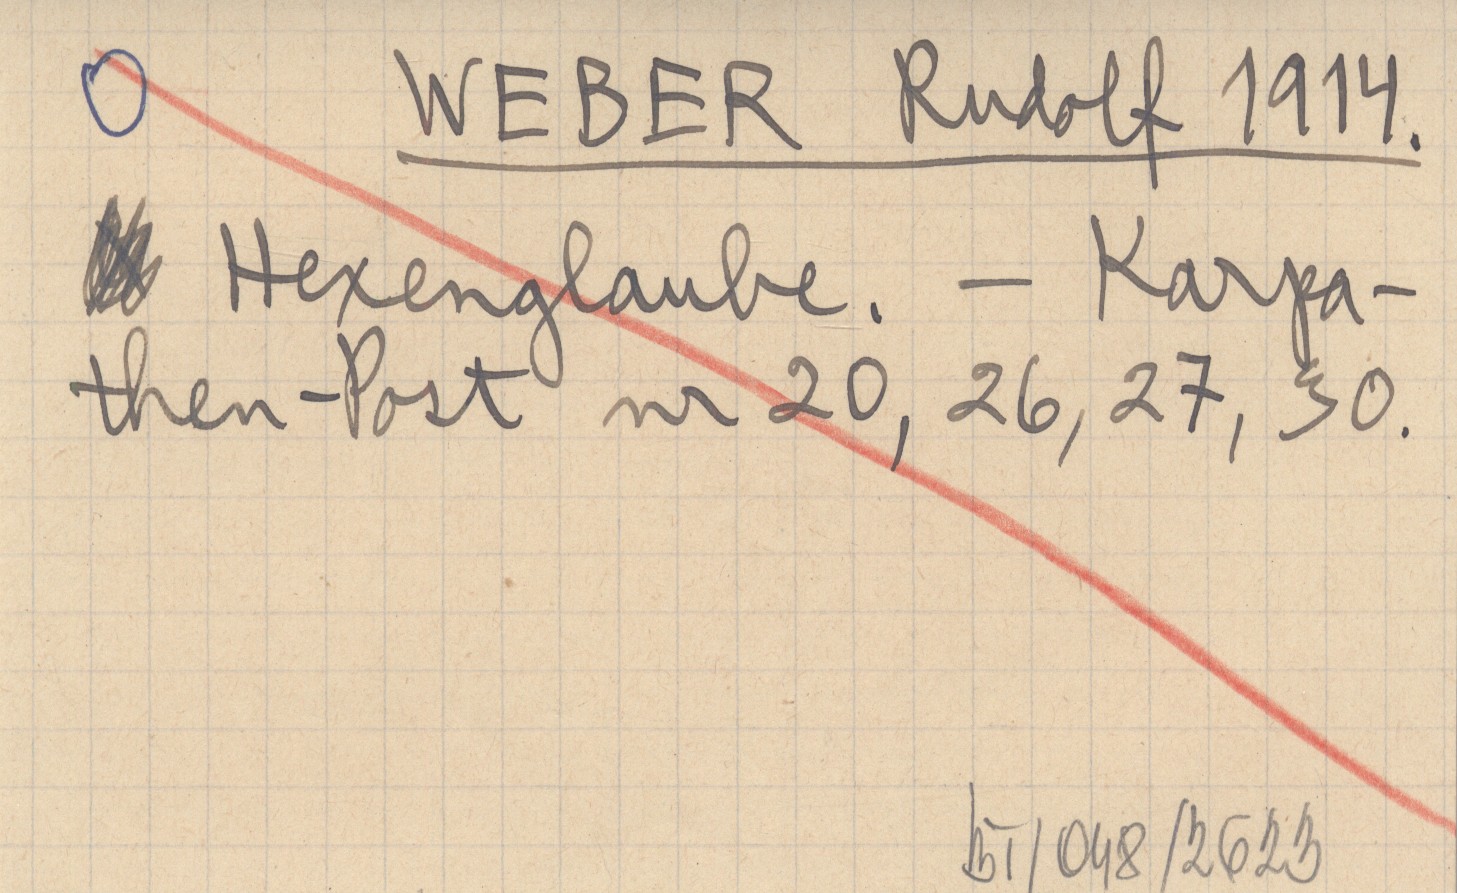 WEBER Rudolf 1914.
Hexenglaube. – Karpa-
then-Post nr 20, 26, 27, 30.
BI/048/2623